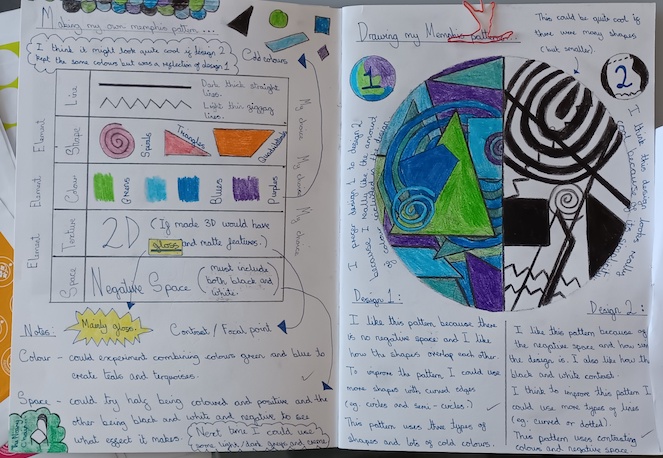 Making my own memphis pattern...
I think it might look quite cool if design 2
kept the same colours but was a reflection of design 1
Cold colours
Element
Line
Dark thick straight
lines.
Light thin zigzag
lines.
My choice
Element
Shape
Spirals
Triangles
Quadrilaterals
My choice
Element
Colour
Greens
Blues
Purples
My choice
Element
Texture
2D (If made 3D would have
gloss and matte features.)
Space
Negative Space (must include
both black and
white.
Notes:
Mainly gloss.
Contrast / Focal point
Colour - could experiment combining colours green and blue to
create teals and turquoises.
Space - could try half being coloured and positive and the
other being black and white and negative to see
what effect it makes.
Next time I could use
some light/dark greys and creme
Drawing my Memphis pattern...
This could be quite cool if
there were many shapes
(but smaller).
1
2
I prefer design 1 to design 2
because I really like the amount
of colour included in the design
I think this design looks really
cool because of its
Design 1:
I like this pattern because there
is no negative space and I like
how the shapes overlap each other.
To improve the pattern I could use
more shapes with curved edges
(eg. circles and semi-circles.)
This pattern uses three types of
shapes and lots of cold colours.
Design 2:
I like this pattern because of
the negative space and how
the design is. I also like how the
black and white contrast.
I think to improve this pattern I
could use more types of lines
(eg. curved or dotted).
This pattern uses contrasting
colours and negative space.